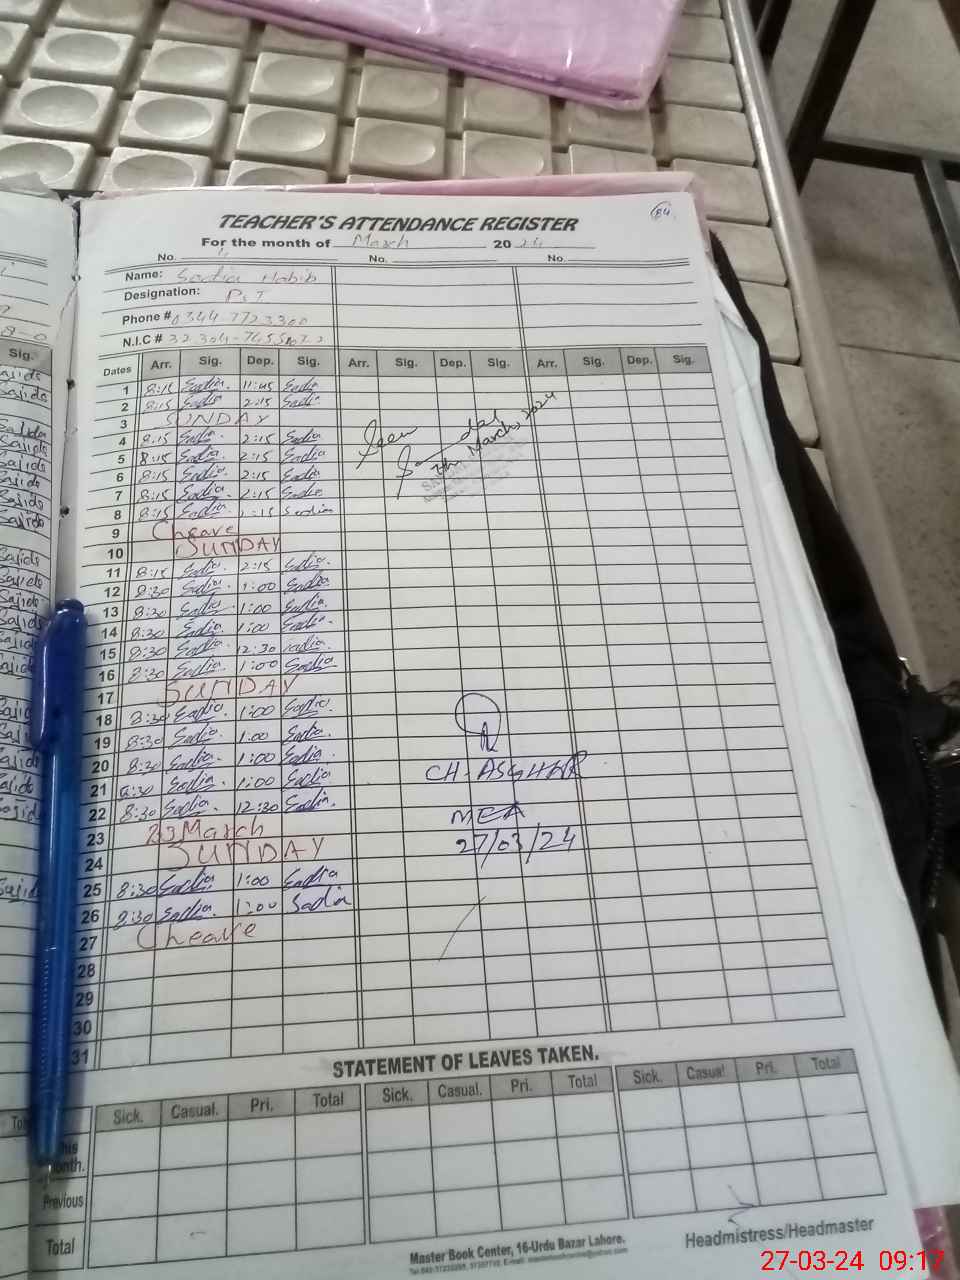 84
TEACHER'S ATTENDANCE REGISTER
For the month of March 2024
No. 4 No. No.
Name: Sadia Habib
Designation: PST
Phone # 0344 7723300
N.I.C #
Dates Arr. Sig. Dep. Sig. Arr. Sig. Dep. Sig. Arr. Sig. Dep. Sig.
1 8:15 Sadia. 11:45 Sadia
2 8:15 Sadia 2:15 Sadia.
3 SUNDAY
4 8:15 Sadia 2:15 Sadia
5 8:15 Sadia. 2:15 Sadia
6 8:15 Sadia 2:15 Sadia
7 8:15 Sadia. 2:15 Sadia
8 8:15 Sadia. Sadia
9 C leave
10 SUNDAY
11 8:15 Sadia. 2:15 Sadia.
12 8:30 Sadia. 1:00 Sadia
13 8:30 Sadia. 1:00 Sadia.
14 8:30 Sadia. 1:00 Sadia.
15 8:30 Sadia. 12:30 Sadia.
16 8:30 Sadia. 1:00 Sadia
17 SUNDAY
18 8:30 Sadia. 1:00 Sadia.
19 8:30 Sadia. 1:00 Sadia.
20 8:30 Sadia. 1:00 Sadia.
21 8:30 Sadia. 1:00 Sadia
22 8:30 Sadia. 12:30 Sadia.
23 23 March
24 SUNDAY
25 8:30 Sadia. 1:00 Sadia
26 8:30 Sadia. 1:00 Sadia
27 C leave
28
29
30
31
Seen
7th March, 2024
CH-ASGHAR
MEA
27/03/24
STATEMENT OF LEAVES TAKEN.
Sick. Casual. Pri. Total Sick. Casual. Pri. Total Sick. Casual. Pri. Total
This Month.
Previous
Total
Master Book Center, 16-Urdu Bazar Lahore.
Headmistress/Headmaster
27-03-24 09:17